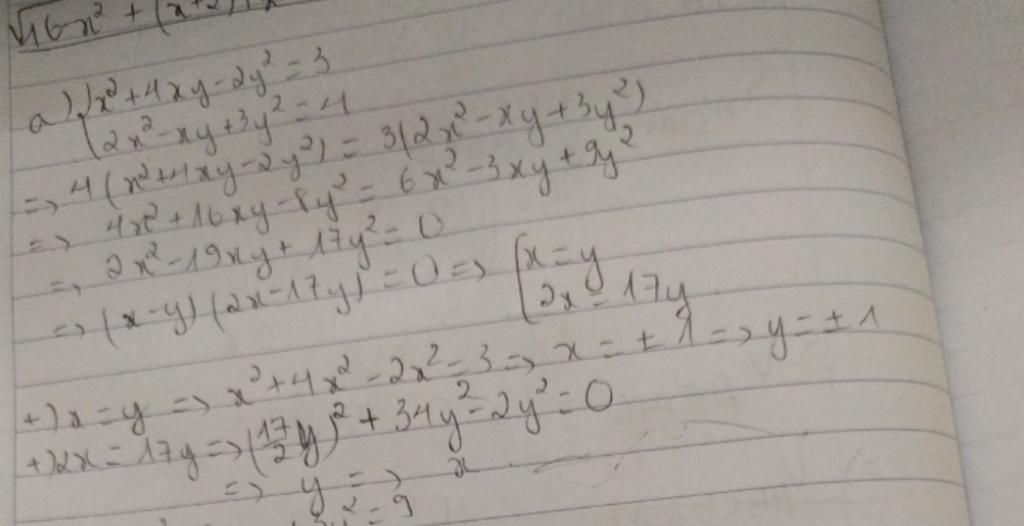 √16x² + (x+2)
a) { x² + 4xy - 2y² = 3
2x² - xy + 3y² = 4
=> 4(x² + 4xy - 2y²) = 3(2x² - xy + 3y²)
=> 4x² + 16xy - 8y² = 6x² - 3xy + 9y²
=> 2x² - 19xy + 17y² = 0
=> (x - y)(2x - 17y) = 0 => [ x = y
2x = 17y
+) x = y => x² + 4x² - 2x² = 3 => x = ± 1 => y = ± 1
+) 2x = 17y => (17/2 y)² + 34y² - 2y² = 0
=> y = => x
= 9